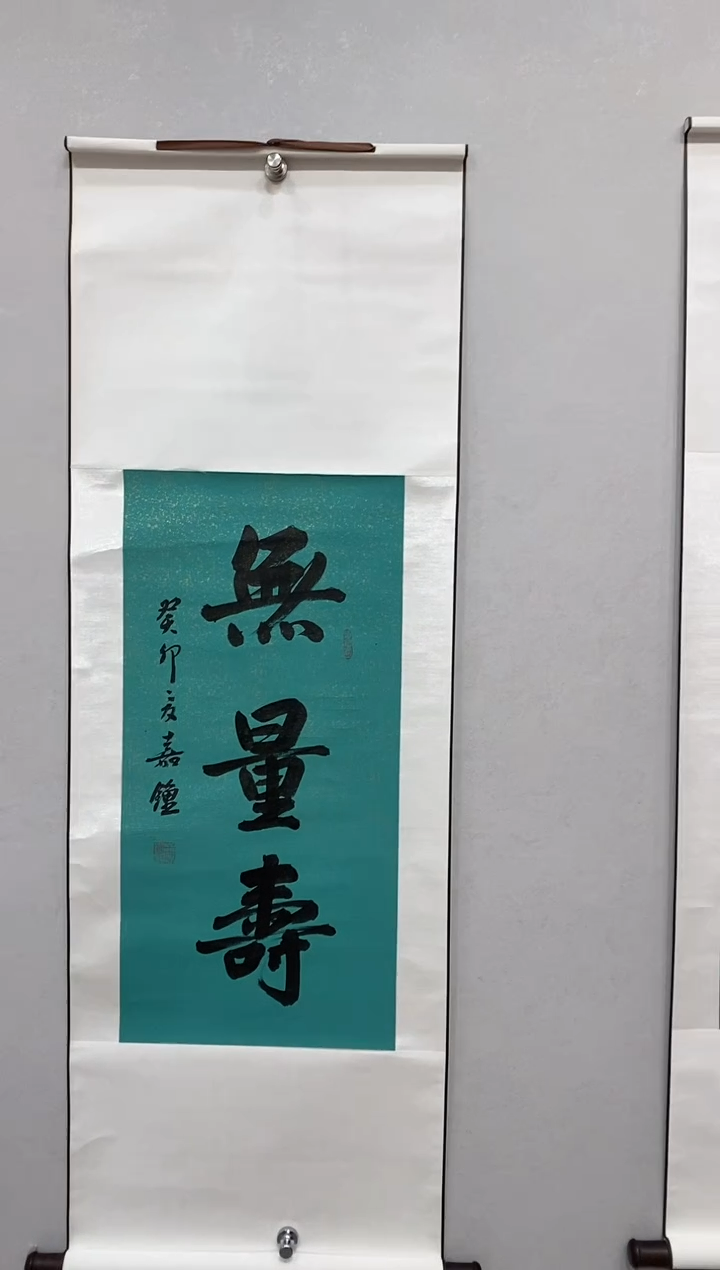 無量壽
癸卯夏嘉鐘